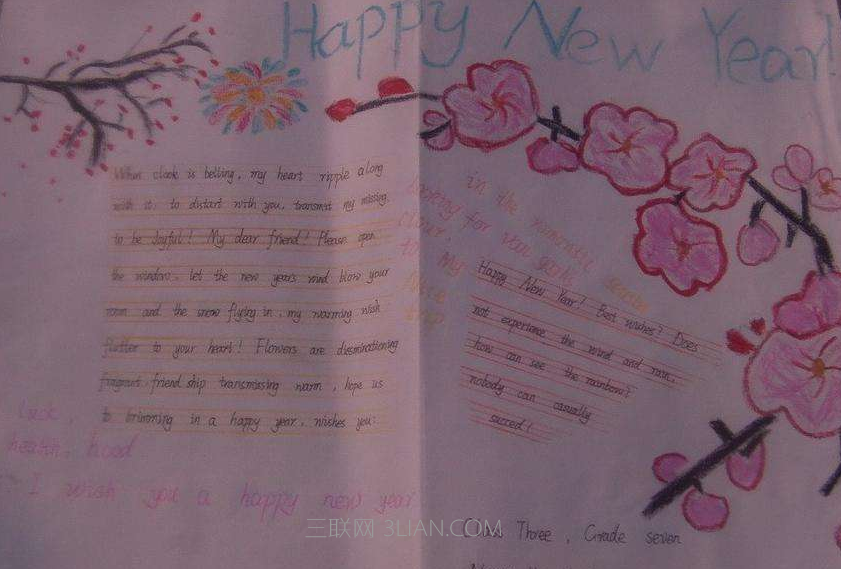 Happy New Year!
When clock is belling, my heart ripple along
with it, to distart with you, transmit my missing,
to be Joyful! My dear friend! Please open
the window, let the new year's wind blow your
room and the snow flying in, my warming wish
flutter to your heart! Flowers are disseminating
fragrant, friend ship transmissing warm, hope us
to brimming in a happy year, wishes you:
luck,
health,
I wish you a happy new year
in the romantic season
looking for van Gogh
My
Happy New Year! Best wishes? Does
not experience the wind and rain,
how can see the rainbow?
nobody can casually
succeed!
三联网 3LIAN.COM
Class Three, Grade seven